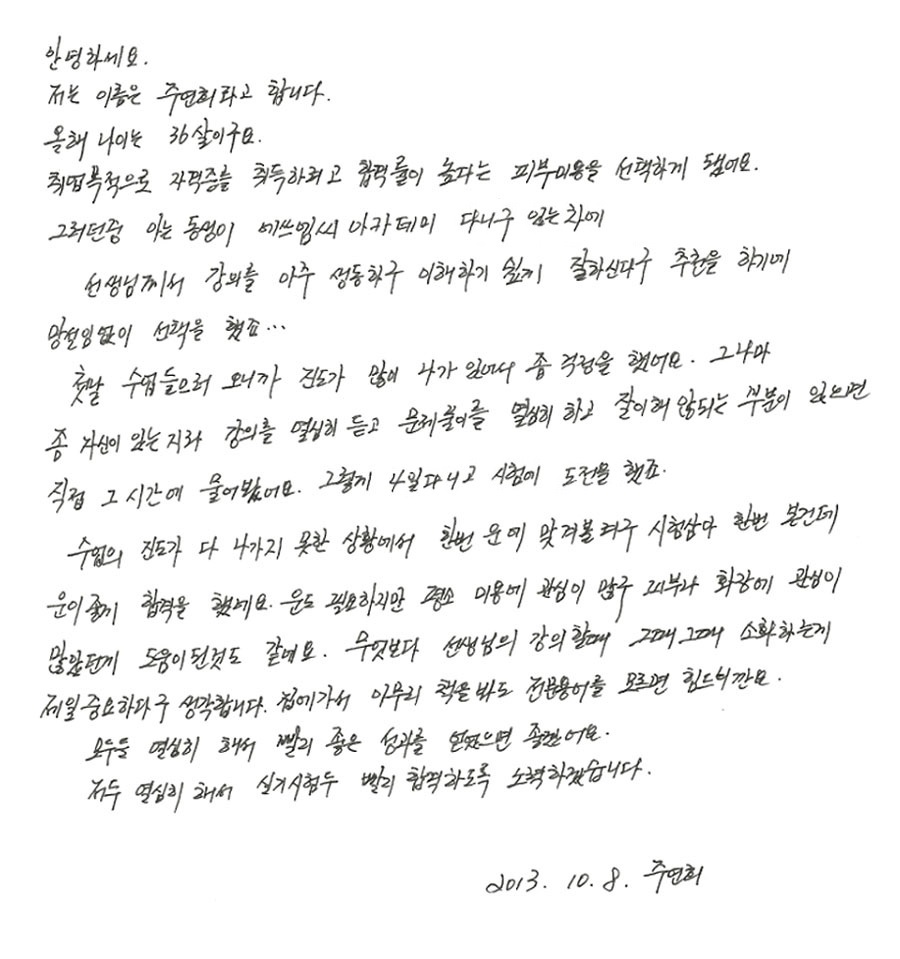 안녕하세요.
저는 이름은 주연희라고 합니다.
올해 나이는 36살이구요.
취업목적으로 자격증를 취득하려고 합격률이 높다는 피부미용을 선택하게 됐어요.
그러던중 아는 동생이 에쓰임씨 아카데미 다니구 있는차에
선생님께서 강의를 아주 생동하구 이해하기 쉽게 잘하신다구 추천을 하기에
망설임없이 선택을 했죠...
첫날 수업들으러 오니까 진도가 많이 나가 있어서 좀 걱정을 했어요. 그나마
좀 자신이 있는지라 강의를 열심히 듣고 문제풀이를 열심히 하고 잘이해 않되는 부분이 있으면
직접 그 시간에 물어봤어요. 그렇게 4일다니고 시험에 도전을 했죠.
수업의 진도가 다 나가지 못한 상황에서 한번 운에 맞겨볼려구 시험삼아 한번 본건데
운이좋게 합격을 했네요. 운도 필요하지만 평소 미용에 관심이 많구 피부과 화장에 관심이
많았던게 도움이 된것도 같네요. 무엇보다 선생님의 강의할때 그때그때 소화하는게
제일중요하다구 생각합니다. 집에가서 아무리 책을봐도 전문용어를 모르면 힘드니깐요.
모두들 열심히 해서 빨리 좋은 성과를 얻었으면 좋겠어요.
저두 열심히 해서 실기시험두 빨리 합격하도록 노력하겠습니다.
2013. 10. 8. 주연희